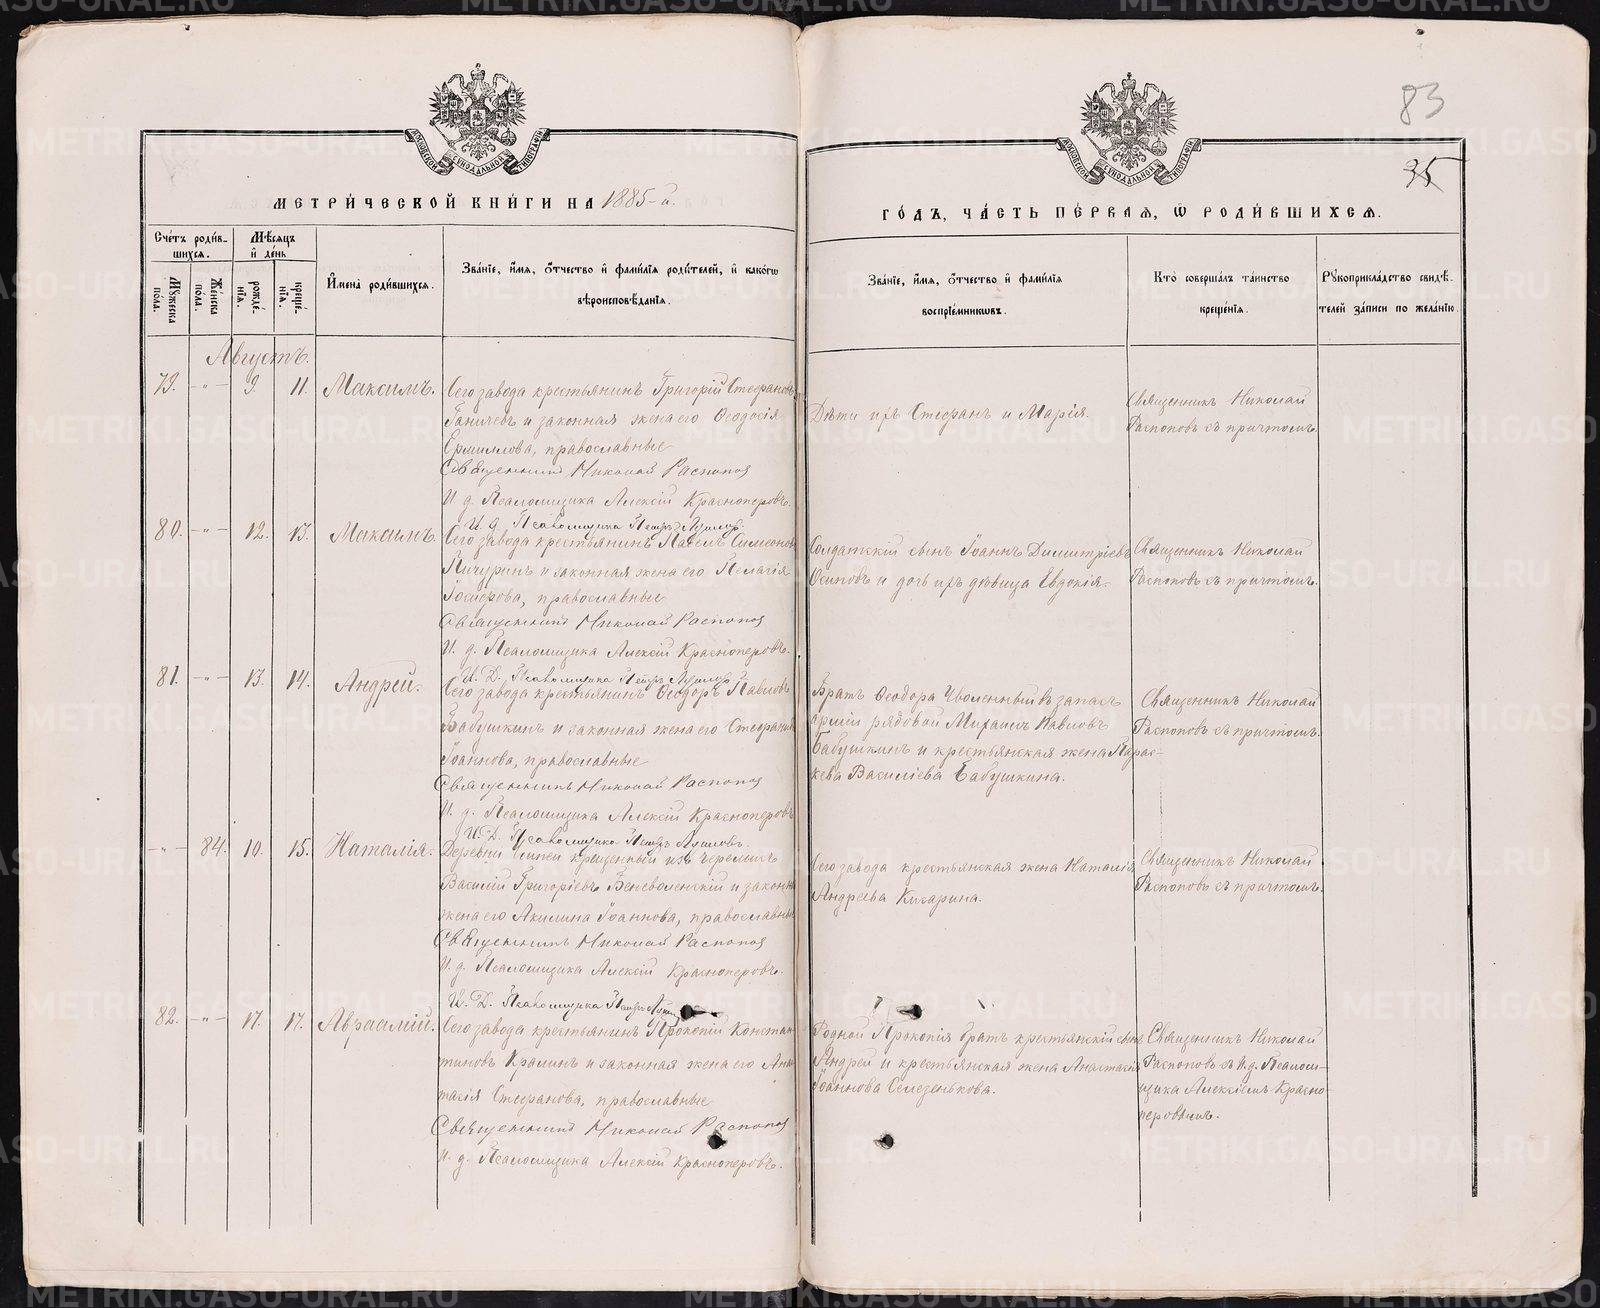 83
35
МЕТРИ́ЧЕСКОЙ КНИ́ГИ НА 1885-й.
ГО́ДЪ, ЧА́СТЬ ПЕ́РВАЯ, Ѡ РОДИ́ВШИХСѦ.
Сче́тъ роди́в-
шихся.
Мꙋ́жеска по́ла.
Же́нска по́ла.
Мѣ́сяцъ и де́нь
рожде́-нїя.
креще́-нїя.
Имена̀ роди́вшихся.
Зва́нїе, и́мя, о́тчество и фами́лїя роди́телей, и како́гѡ
вѣроисповѣ́данїя.
Зва́нїе, и́мя, о́тчество и фами́лїя
воспрїе́мникѡвъ.
Кто̀ соверша́лъ та́инство
креще́нїя.
Рꙋкоприкла́дство свидѣ́-
телей за́писи по жела́нїю.
Августъ.
79. -"- 9. 11. Максимъ.
Сего завода крестьянинъ Григорій Стефановъ
Ганичевъ и законная жена его Ѳеодосія
Ермилова, православные
Священникъ Николай Распопов
И. д. Псаломщика Алексій Красноперовъ.
И. д. Псаломщика Петръ
Дѣти ихъ Стефанъ и Марія.
Священникъ Николай
Распоповъ съ причтомъ.
80. -"- 12. 13. Максимъ.
Сего завода крестьянинъ Павелъ Симеоновъ
Пичугинъ и законная жена его Пелагія
православные
Священникъ Николай Распопов
И. д. Псаломщика Алексій Красноперовъ.
И. Д. Псаломщика Петръ
Солдатскій сынъ Іоаннъ Димитріевъ
Осиповъ и дочь ихъ дѣвица Евдокія
Священникъ Николай
Распоповъ съ причтомъ.
81. -"- 13. 14. Андрей.
Сего завода крестьянинъ Ѳеодоръ Павловъ
Бабушкинъ и законная жена его Стефанида
Іоаннова, православные
Священникъ Николай Распопов
И. д. Псаломщика Алексій Красноперовъ
И. Д. Псаломщика Петръ
Братъ Ѳеодора Уволенный въ запасъ
арміи рядовой Михаилъ Павловъ
Бабушкинъ и крестьянская жена Парас-
кева Василіева Бабушкина.
Священникъ Николай
Распоповъ съ причтомъ.
-"- 84. 10. 15. Наталія.
Деревни крещенный изъ черемисъ
Василій Григоріевъ Беневоленскій и законная
жена его Акилина Іоаннова, православные
Священникъ Николай Распопов
И. д. Псаломщика Алексій Красноперовъ.
И. Д. Псаломщика Петръ
Сего завода крестьянская жена Наталія
Андреева Кичарина.
Священникъ Николай
Распоповъ съ причтомъ.
82. -"- 17. 17. Авраамій.
Сего завода крестьянинъ Прокопій Констан-
тиновъ и законная жена его Анас-
тасія Стефанова, православные
Священникъ Николай Распопов
И. д. Псаломщика Алексій Красноперовъ.
Родной Прокопія братъ крестьянскій сынъ
Андрей и крестьянская жена Анастасія
Іоаннова Селезенькова.
Священникъ Николай
Распоповъ съ И. д. Псалом-
щика Алексіемъ Красно-
перовымъ.